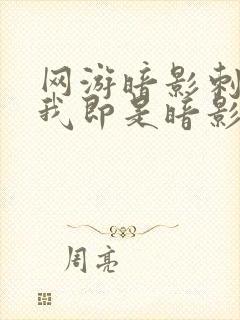 网游暗影刺
我即是暗影
周亮